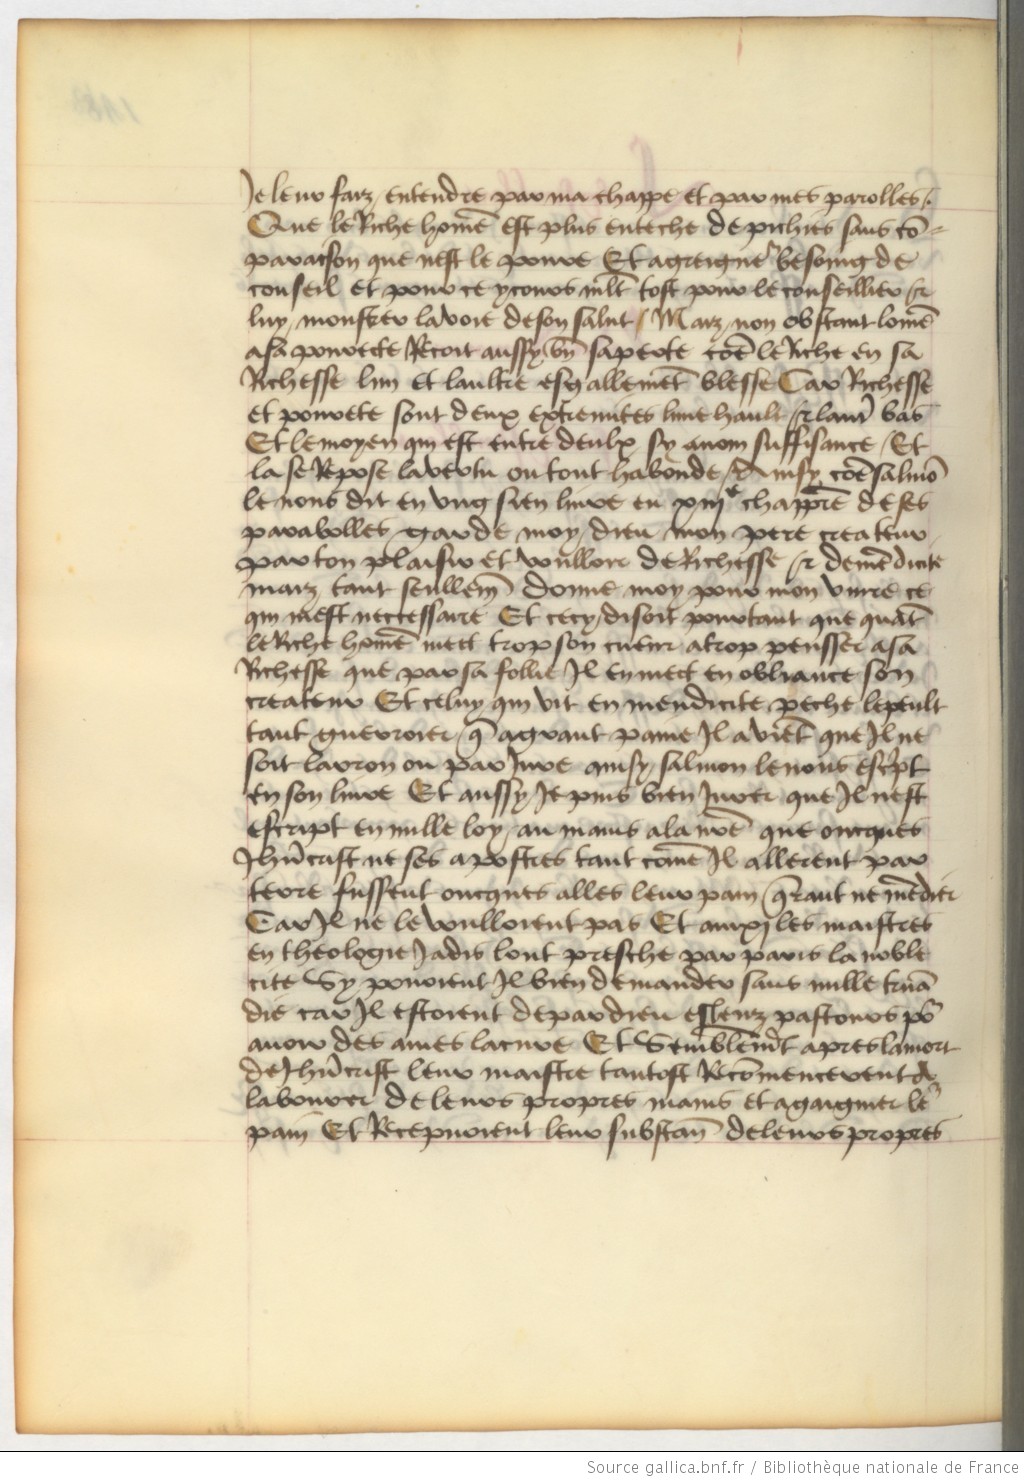 Je leur faiz entendre par ma chappe et par mes parolles /
Que le Riche home͂ est plus enteche de pichies sans co͂ =
paraison que nest le povre Et a greigne͛ besoing de
conseil Et pour ce y cours ml͂t tost pour le conseillier &
luy monstrer la voie de son salut / Maiz non obstant lome͂
a sa povrete Recoit aussy vn͂ sa perte co͂e le Riche en sa
Richesse lun Et laultre esgallemet͂ blesse Car Richesse
et povrete sont deux extremites lune hault & laut͛ bas
Et le moyen qui est entre deulx sy a nom suffisance / Et
la se Repose la vertu ou tout habonde / Ainsy co͂e salmo͂
le nous dit en vng sien livre en xiij͏ͤ chapp͂re de ses
parabolles garde moy / dieu mon pere createur
par ton plaisir et voulloir de Richesse & de me͂dicite
maiz tant seullem͂ donne moy pour mon vivre ce
qui mest neccessaire Et cecy / disoit pourtant que qua͂t
le Riche home͂ mect trop son cueur a trop pensser a sa
Richesse que par sa follie Il en mect en obliance son
createur Et celuy qui vit en mendicite peche le peult
tant guerroier / q͂ a grant paine Il aviet͂ que Il ne
soit larron ou parJure ainsy salmon le nous esc͛pt
En son livre Et aussy / Je puis bien Jurer que Il nest
escript en nulle loy / au mains a la n͂re que oncques
Jhu͂crist ne ses apostres tant come͂ Il allerent par
terre fussent oncques alles leur pain q͛rant ne me͂dier
Car Il ne le voulloient pas Et ainxi les maistres
en theologie Jadis lont presche par paris la noble
cite Sy povoient Il bien demander sans nulle trua͂
die car Il estoient de par dieu esleuz pastours po͛
avoir des ames la cure Et Semblem͂t apres la mort
de Jhu͂crist leur maistre tantost Reco͂mencerent a
labourer de leurs propres mains et a gaigner le͛
pain Et Recepvoient leur substan͂ de leurs propres